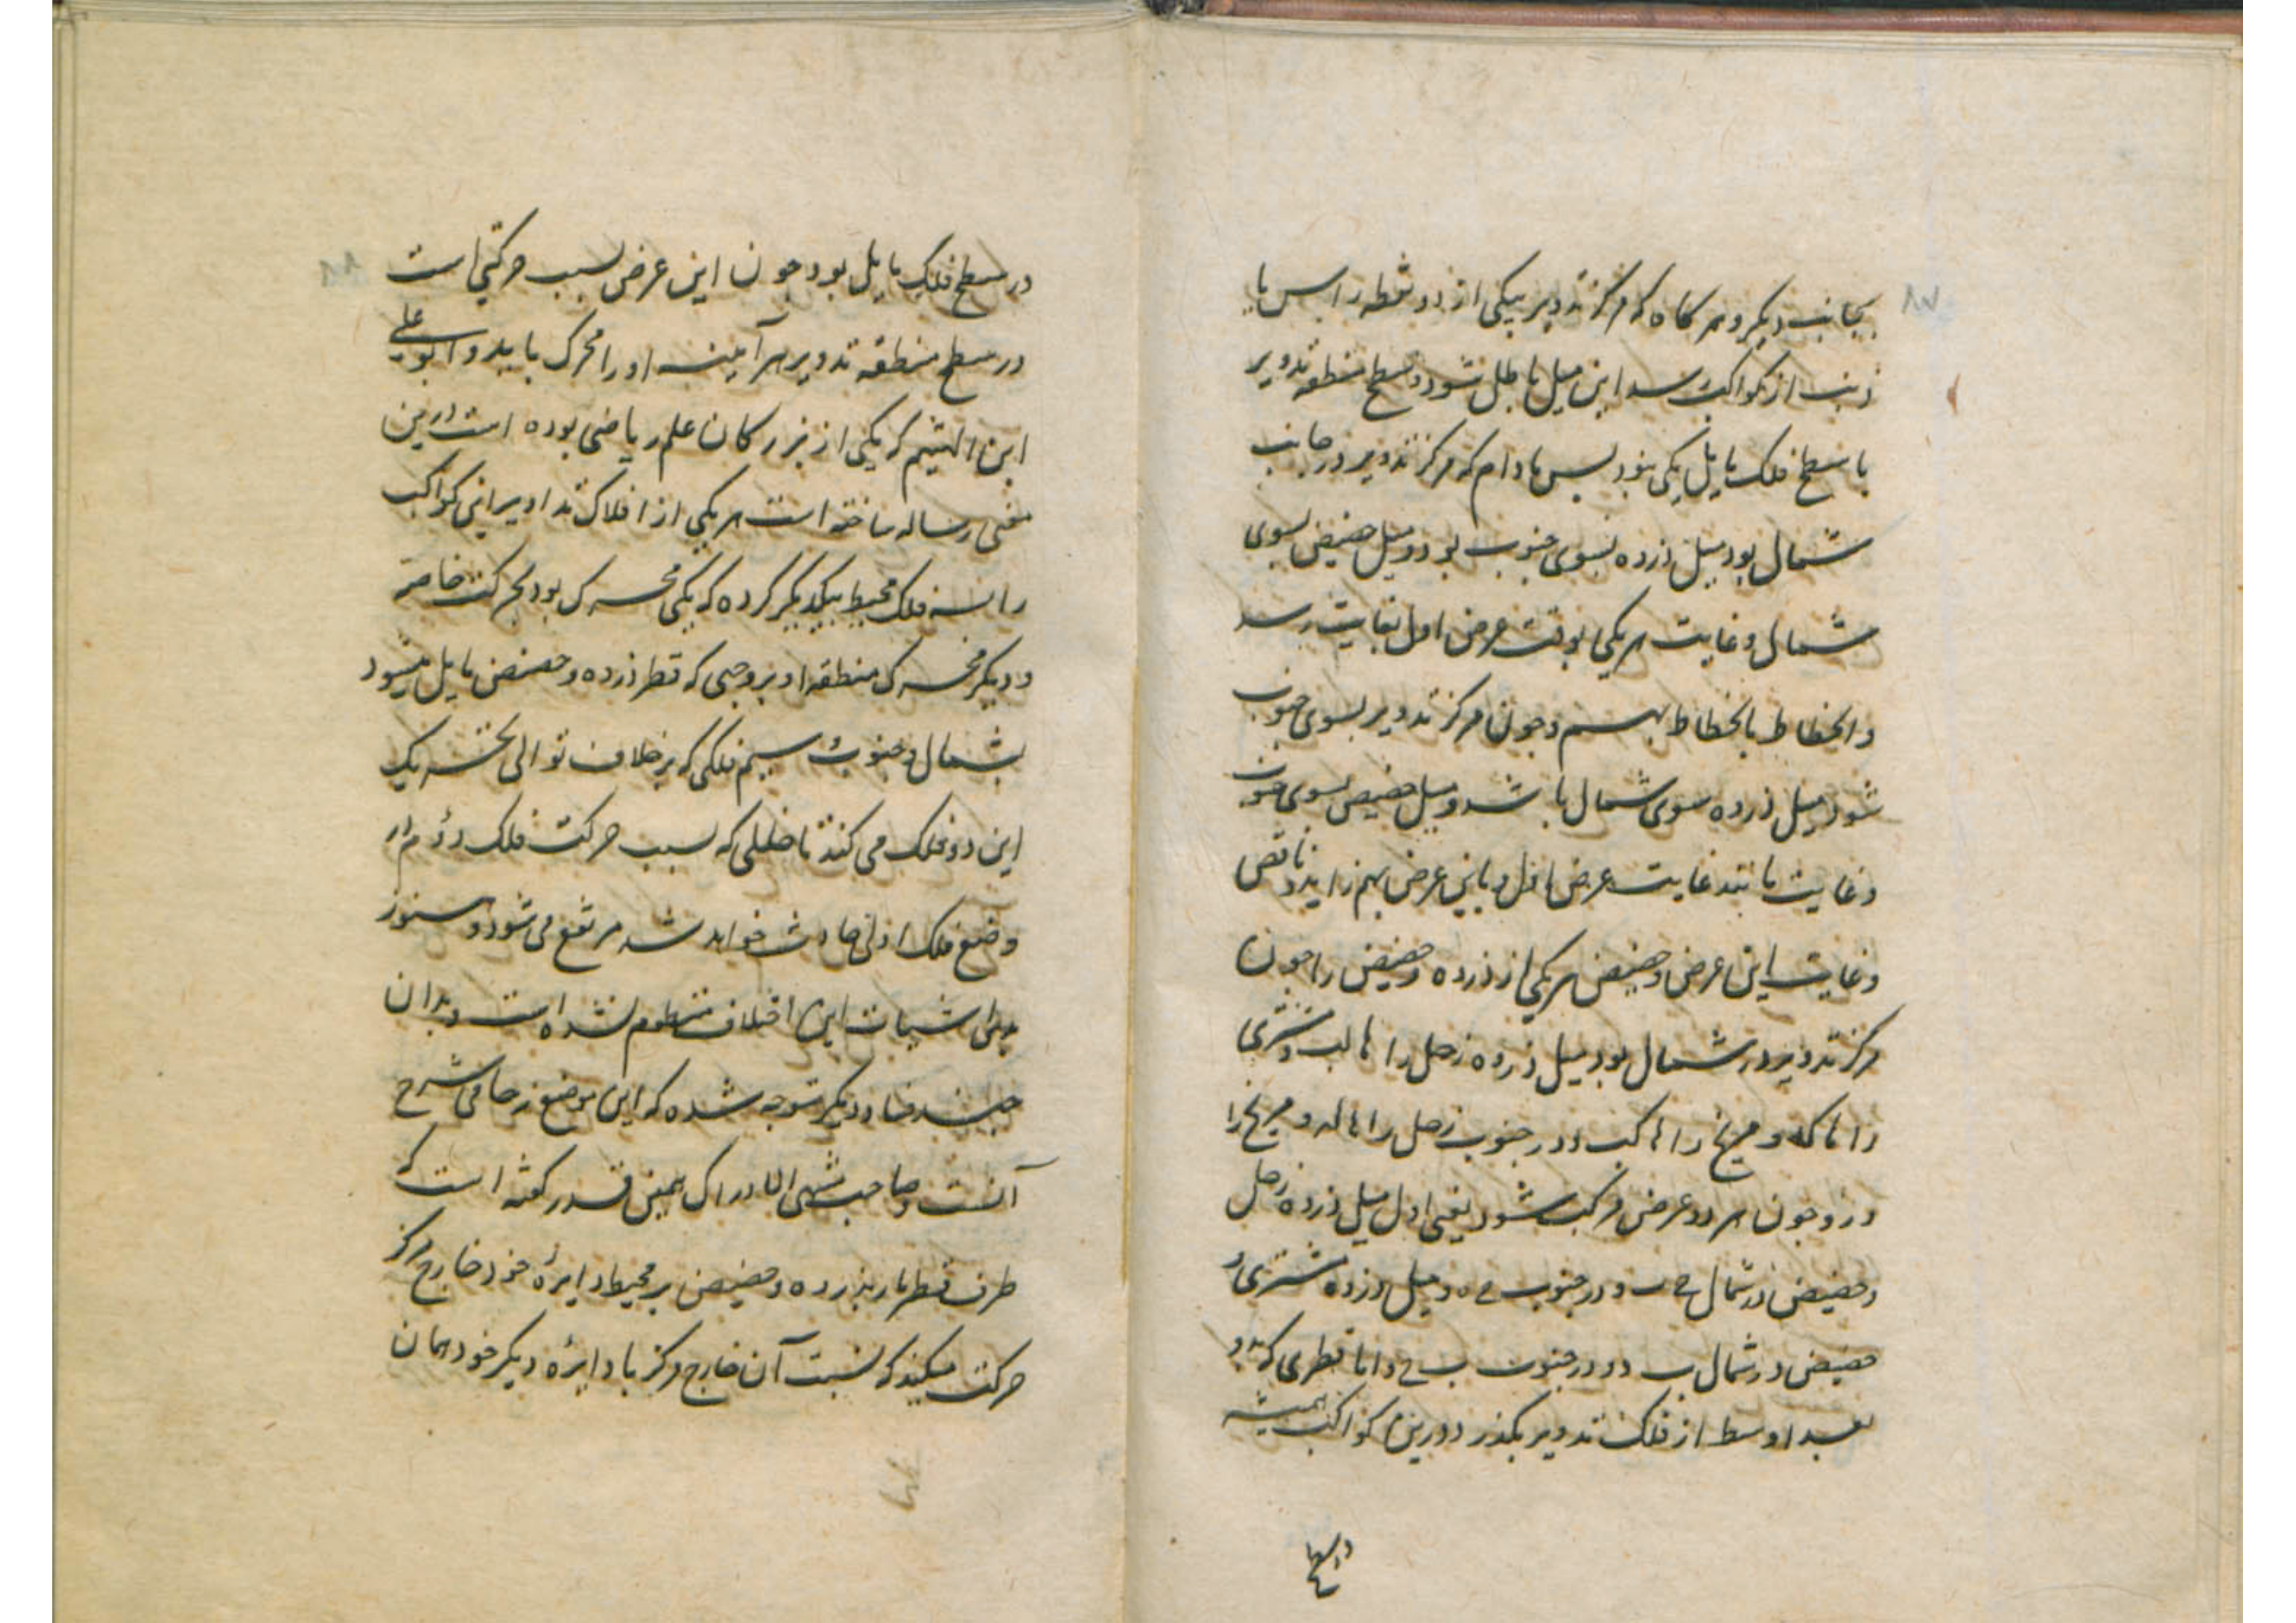 بجانب دیکر و هر کاه که مرکز تدویر بیکی از دو نقطه راس یا
ذنب از کواکب رسد این میل باطل شود و سطح منطقه تدویر
با سطح فلک مایل یکی بود پس مادام که مرکز تدویر در جانب
شمال بود میل ذروه بسوی جنوب بود و میل حضیض بسوی
شمال و غایت هر یکی بوقت عرض اول بغایت رسد
و انحطاط بانحطاط بهم و چون مرکز تدویر بسوی جنوب
شود میل ذروه سوی شمال باشد و میل حضیض بسوی جنوب
و غایت مانند غایت عرض اول و باین عرض بهم زاید و ناقص
و غایت این عرض و حضیض هر یکی از ذروه و حضیض را چون
مرکز تدویر در شمال بود میل ذروه زحل را
را و مریخ را و در جنوب زحل را و مریخ را
و چون هر دو عرض مرکب شود یعنی اول میل ذروه زحل
و حضیض در شمال و در جنوب و میل ذروه مشتری و
حضیض در شمال و در جنوب و اما قطری که بدو
بعد اوسط از فلک تدویر بکذرد درین کواکب همیشه
در سطح
در سطح فلک مایل بود چون این عرض بسبب حرکتی است
در سطح منطقه تدویر هر آینه او را محرک باید و ابو علی
ابن الهیثم که یکی از بزرکان علم ریاضی بوده است درین
معنی رساله ساخته است هر یکی از افلاک تداویر این کواکب
را سه فلک محیط بیکدیکر کرده که یکی محرک بود بحرکت خاصه
و دیکر محرک منطقه او بر وجهی که قطر ذروه و حضیض مایل میشود
بشمال و جنوب و سیم فلکی که بر خلاف توالی یک
این دو فلک می کند تا خللی که بسبب حرکت فلک دوم در
وضع فلک اولی حادث خواهد شد مرتفع می شود و هنوز
این اختلاف منظوم نشده است و بدان
چند فساد دیکر متوجه شده که این موضع نه جای شرح
آنست و صاحب منتهی الادراک همین قدر کفته است که
طرف قطر مار بذروه و حضیض بر محیط دایرهٔ خود خارج مرکز
حرکت میکند که نسبت آن خارج مرکز با دایره دیکر خود همان